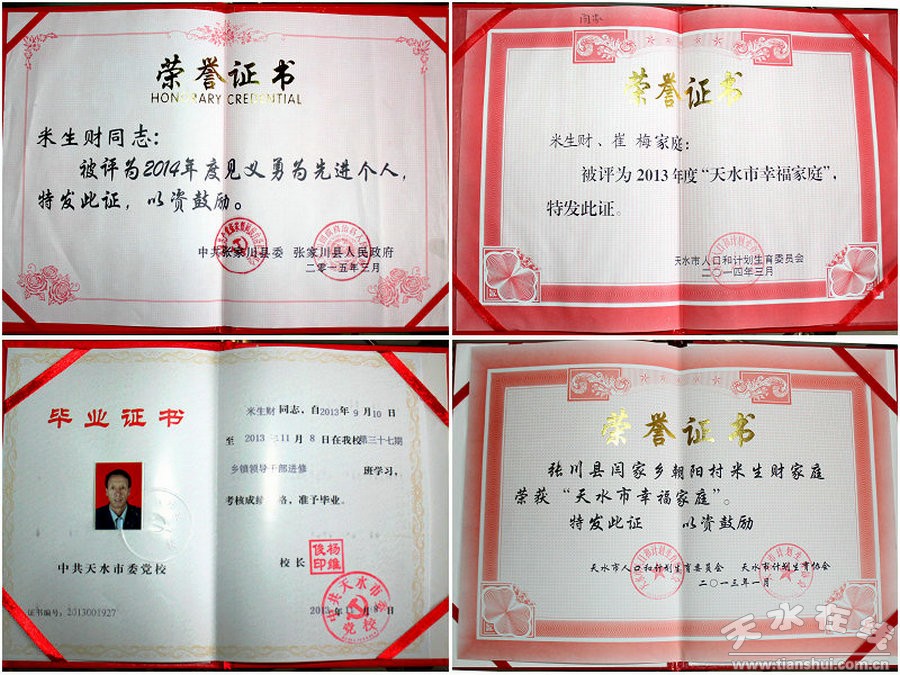 荣誉证书
HONORARY CREDENTIAL
米生财同志：
被评为2014年度见义勇为先进个人，
特发此证，以资鼓励。
中共张家川县委 张家川县人民政府
二〇一五年三月
荣誉证书
米生财、崔 梅家庭：
被评为2013年度“天水市幸福家庭”，
特发此证。
天水市人口和计划生育委员会
二〇一四年三月
毕业证书
中共天水市委党校
证书编号：2013001927
米生财同志，自2013年9月10日
至2013年11月8日在我校第三十七期
乡镇领导干部进修 班学习，
考核成绩 格，准予毕业。
校长
杨维俊印
2013年11月8日
中共天水市委党校
荣誉证书
张川县闫家乡朝阳村米生财家庭
荣获“天水市幸福家庭”。
特发此证 以资鼓励
天水市人口和计划生育委员会 天水市计划生育协会
二〇一三年一月
天水在线
www.tianshui.com.cn